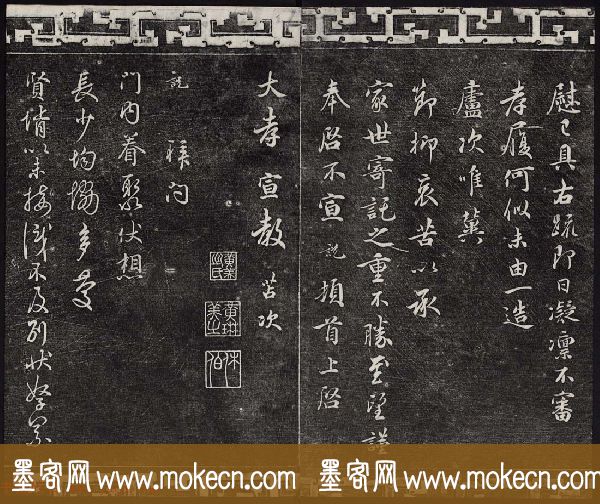 慰已具右疏即日凝凛不審
孝履何似未由一造
廬次唯冀
節抑哀苦以承
家世寄託之重不勝至望謹
奉啓不宣 説 頓首上啓
大孝宣教 苫次
説 疎問
門內眷聚伏想
長少均協多慶
賢壻以未接識不及別狀
墨客网 www.mokecn.com 墨客网 www.mokecn.com